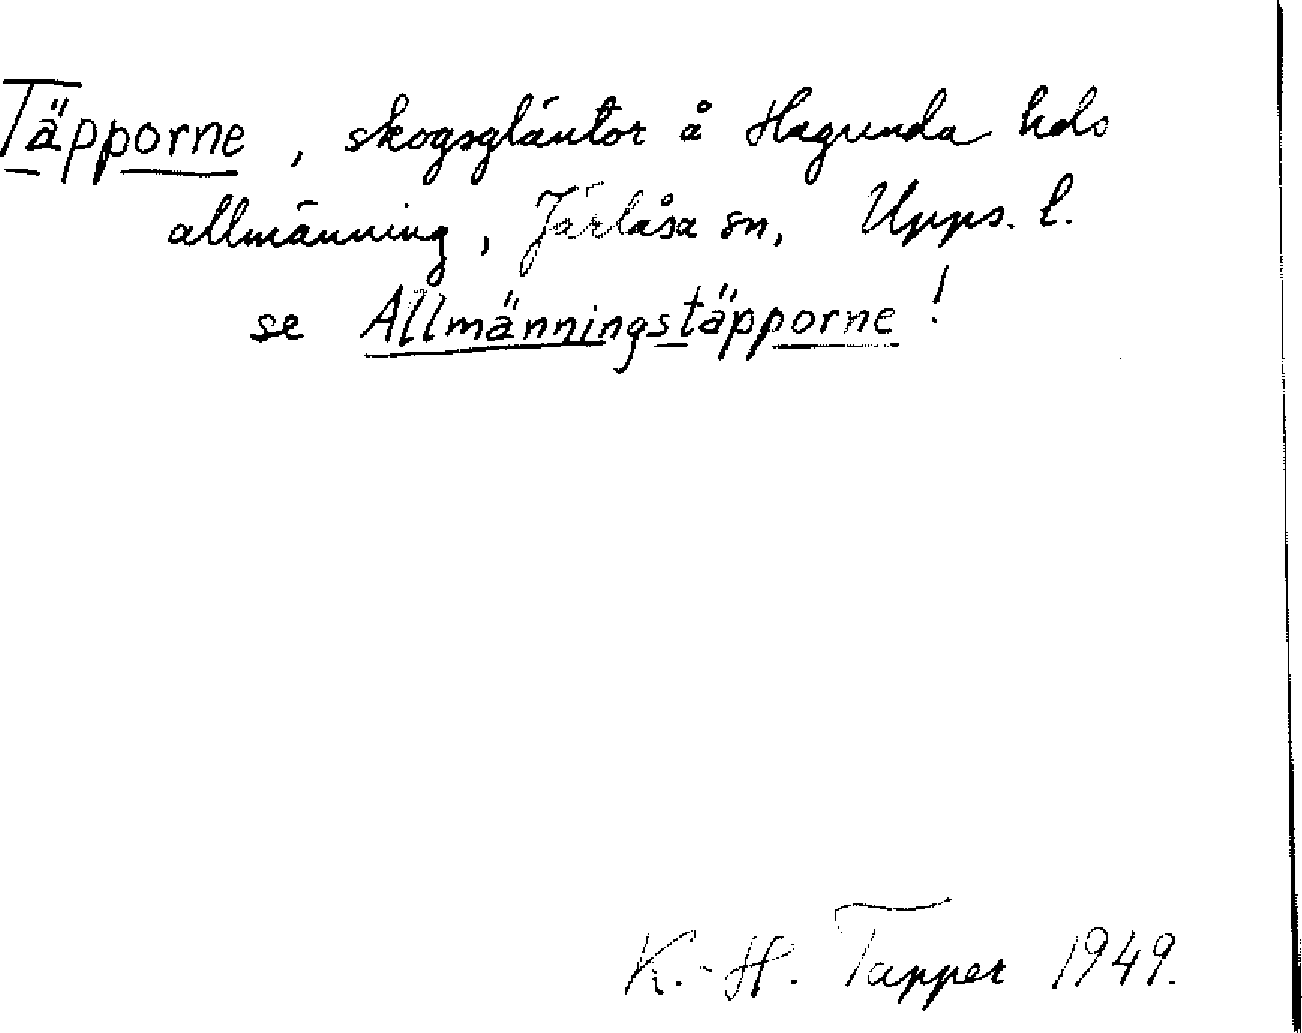 Täpporne, skogsgläntor å Hagunda hds
allmänning, Järlåsa sn, Upps. l.
se Allmänningstäpporne!
K.-H. Tapper 1949.